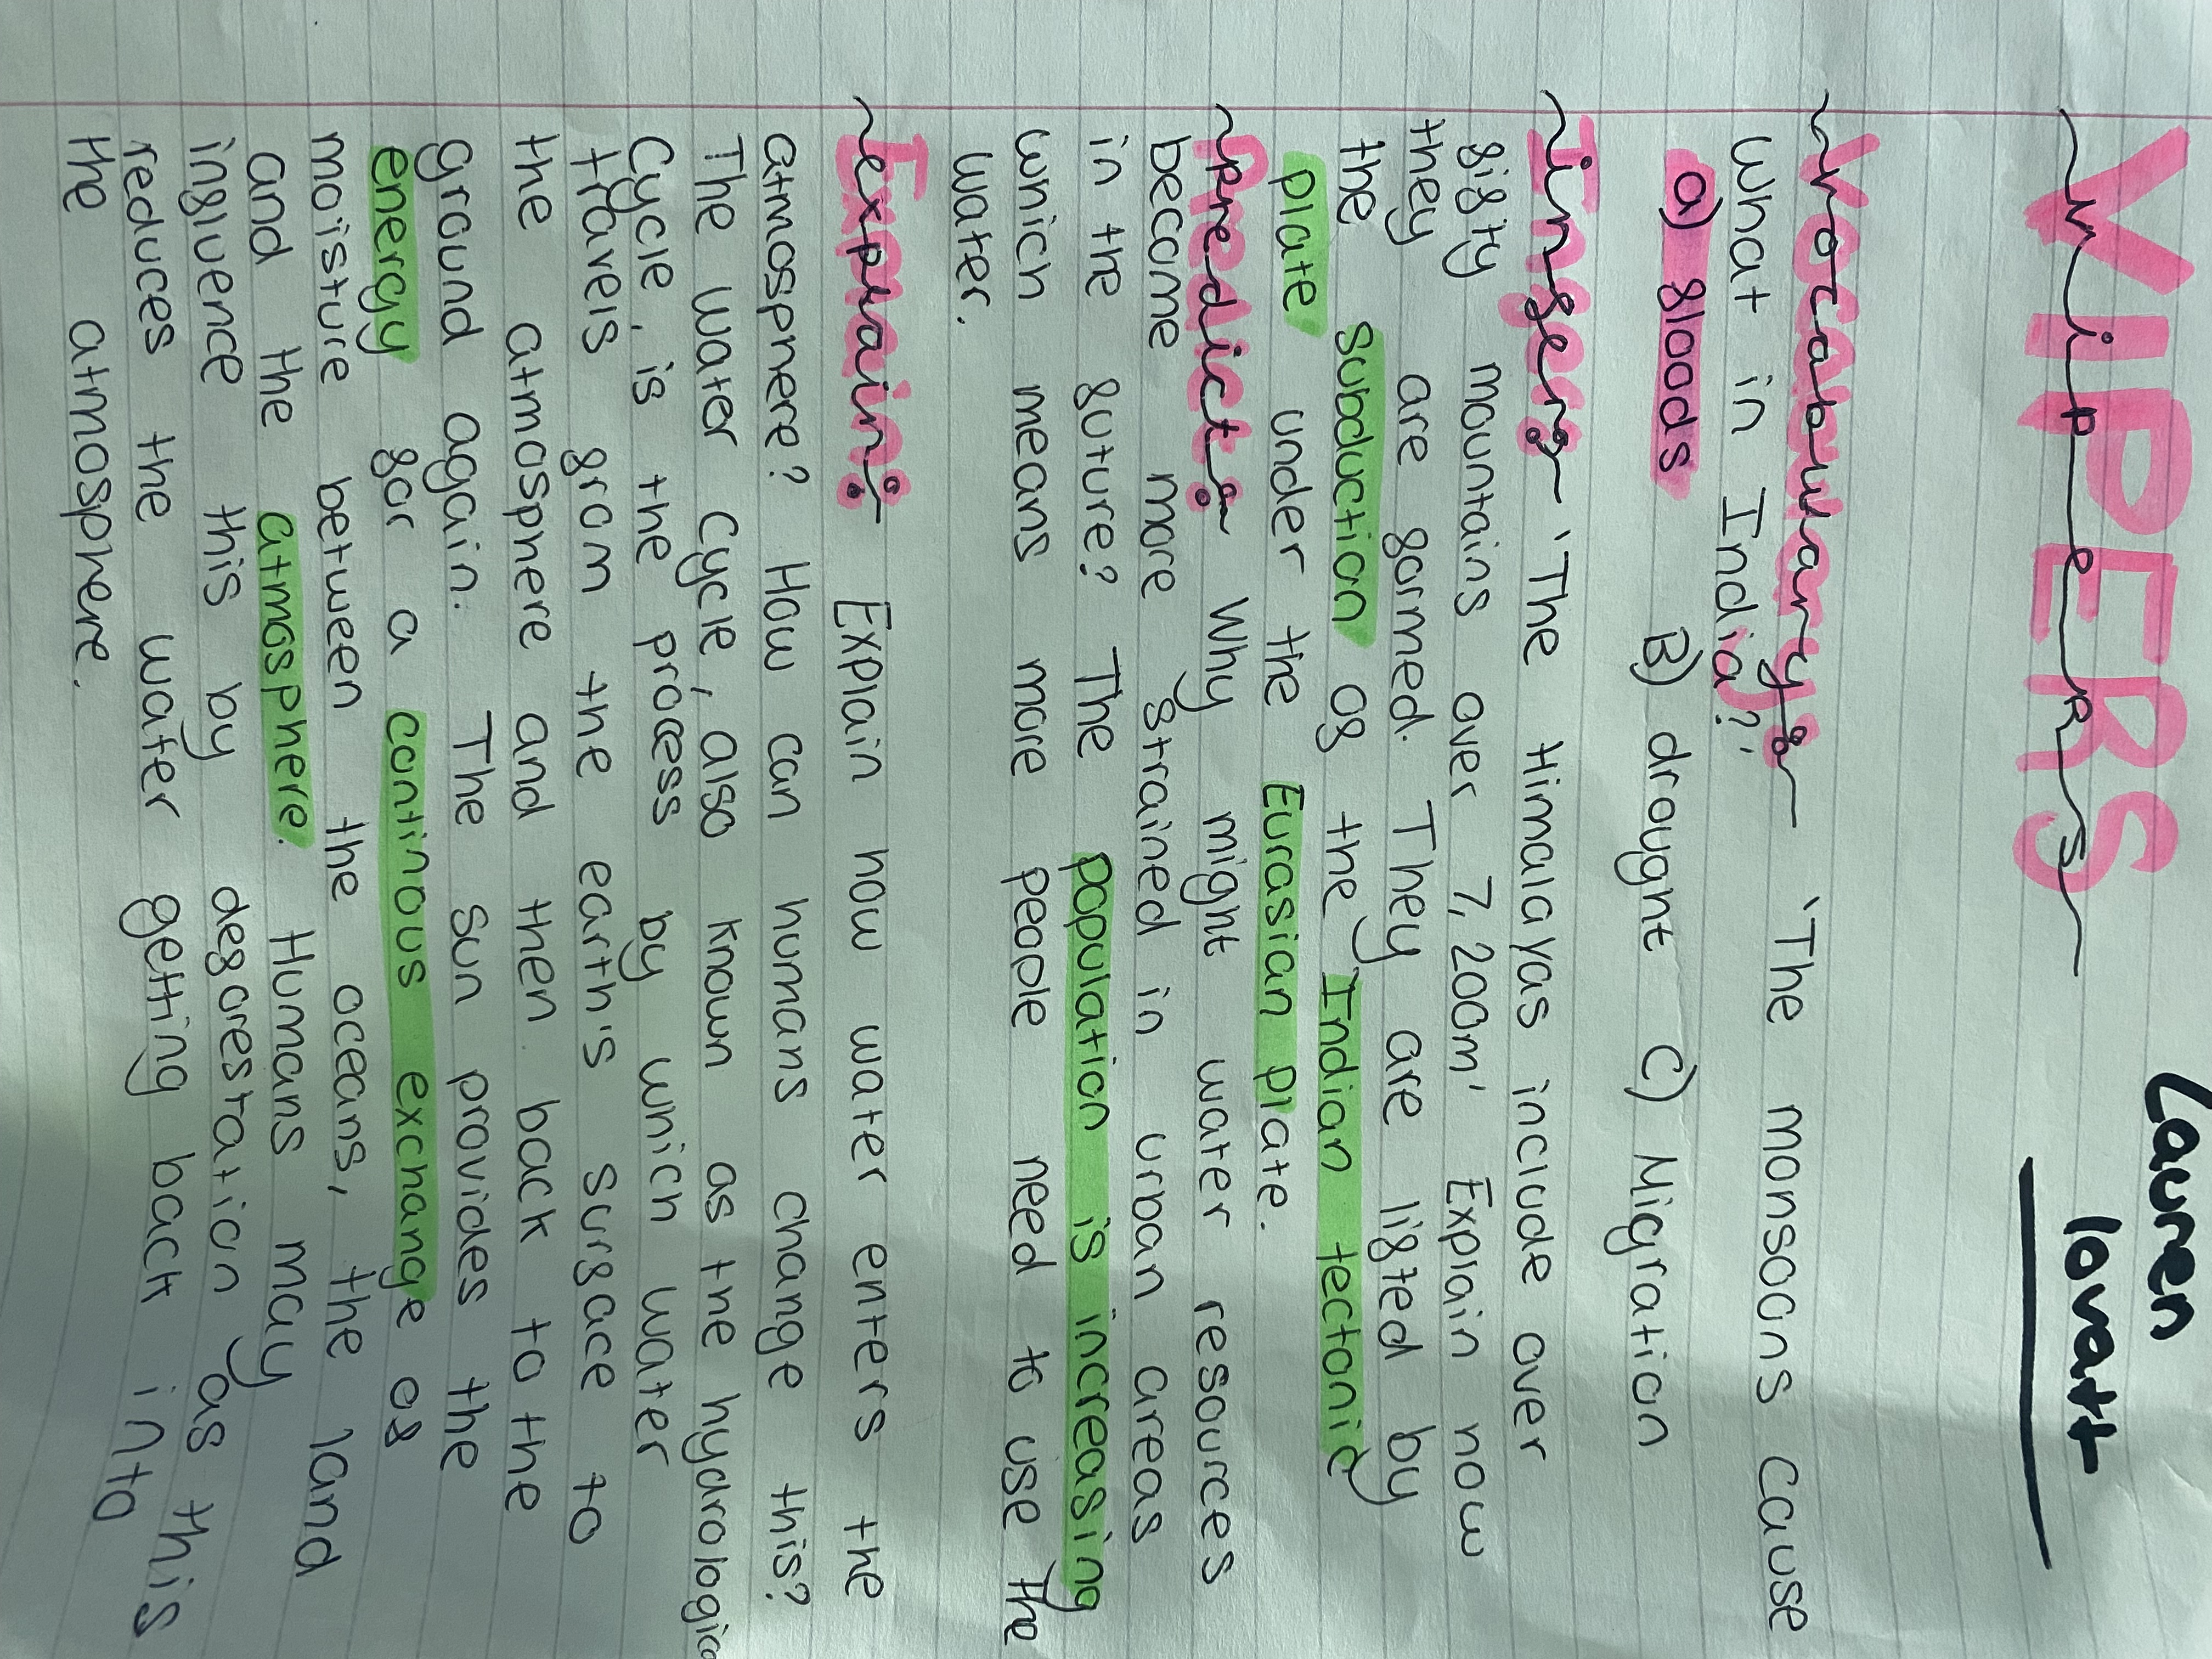 Lauren
lovatt
VIPERS
Vipers
Vocabulary: 'The monsoons cause
what in India?'
a) floods B) drought C) Migration
Infer: 'The Himalayas include over
fifty mountains over 7,200m' Explain how
they are formed. They are lifted by
the subduction of the Indian tectonic
plate under the Eurasian plate.
Predict: Why might water resources
become more strained in urban areas
in the future? The population is increasing
which means more people need to use the
water.
Explain: Explain how water enters the
atmosphere? How can humans change this?
The water cycle, also known as the hydrologic
cycle, is the process by which water
travels from the earth's surface to
the atmosphere and then back to the
ground again. The sun provides the
energy for a continous exchange of
moisture between the oceans, the land
and the atmosphere. Humans may
influence this by deforestation as this
reduces the water getting back into
the atmosphere.